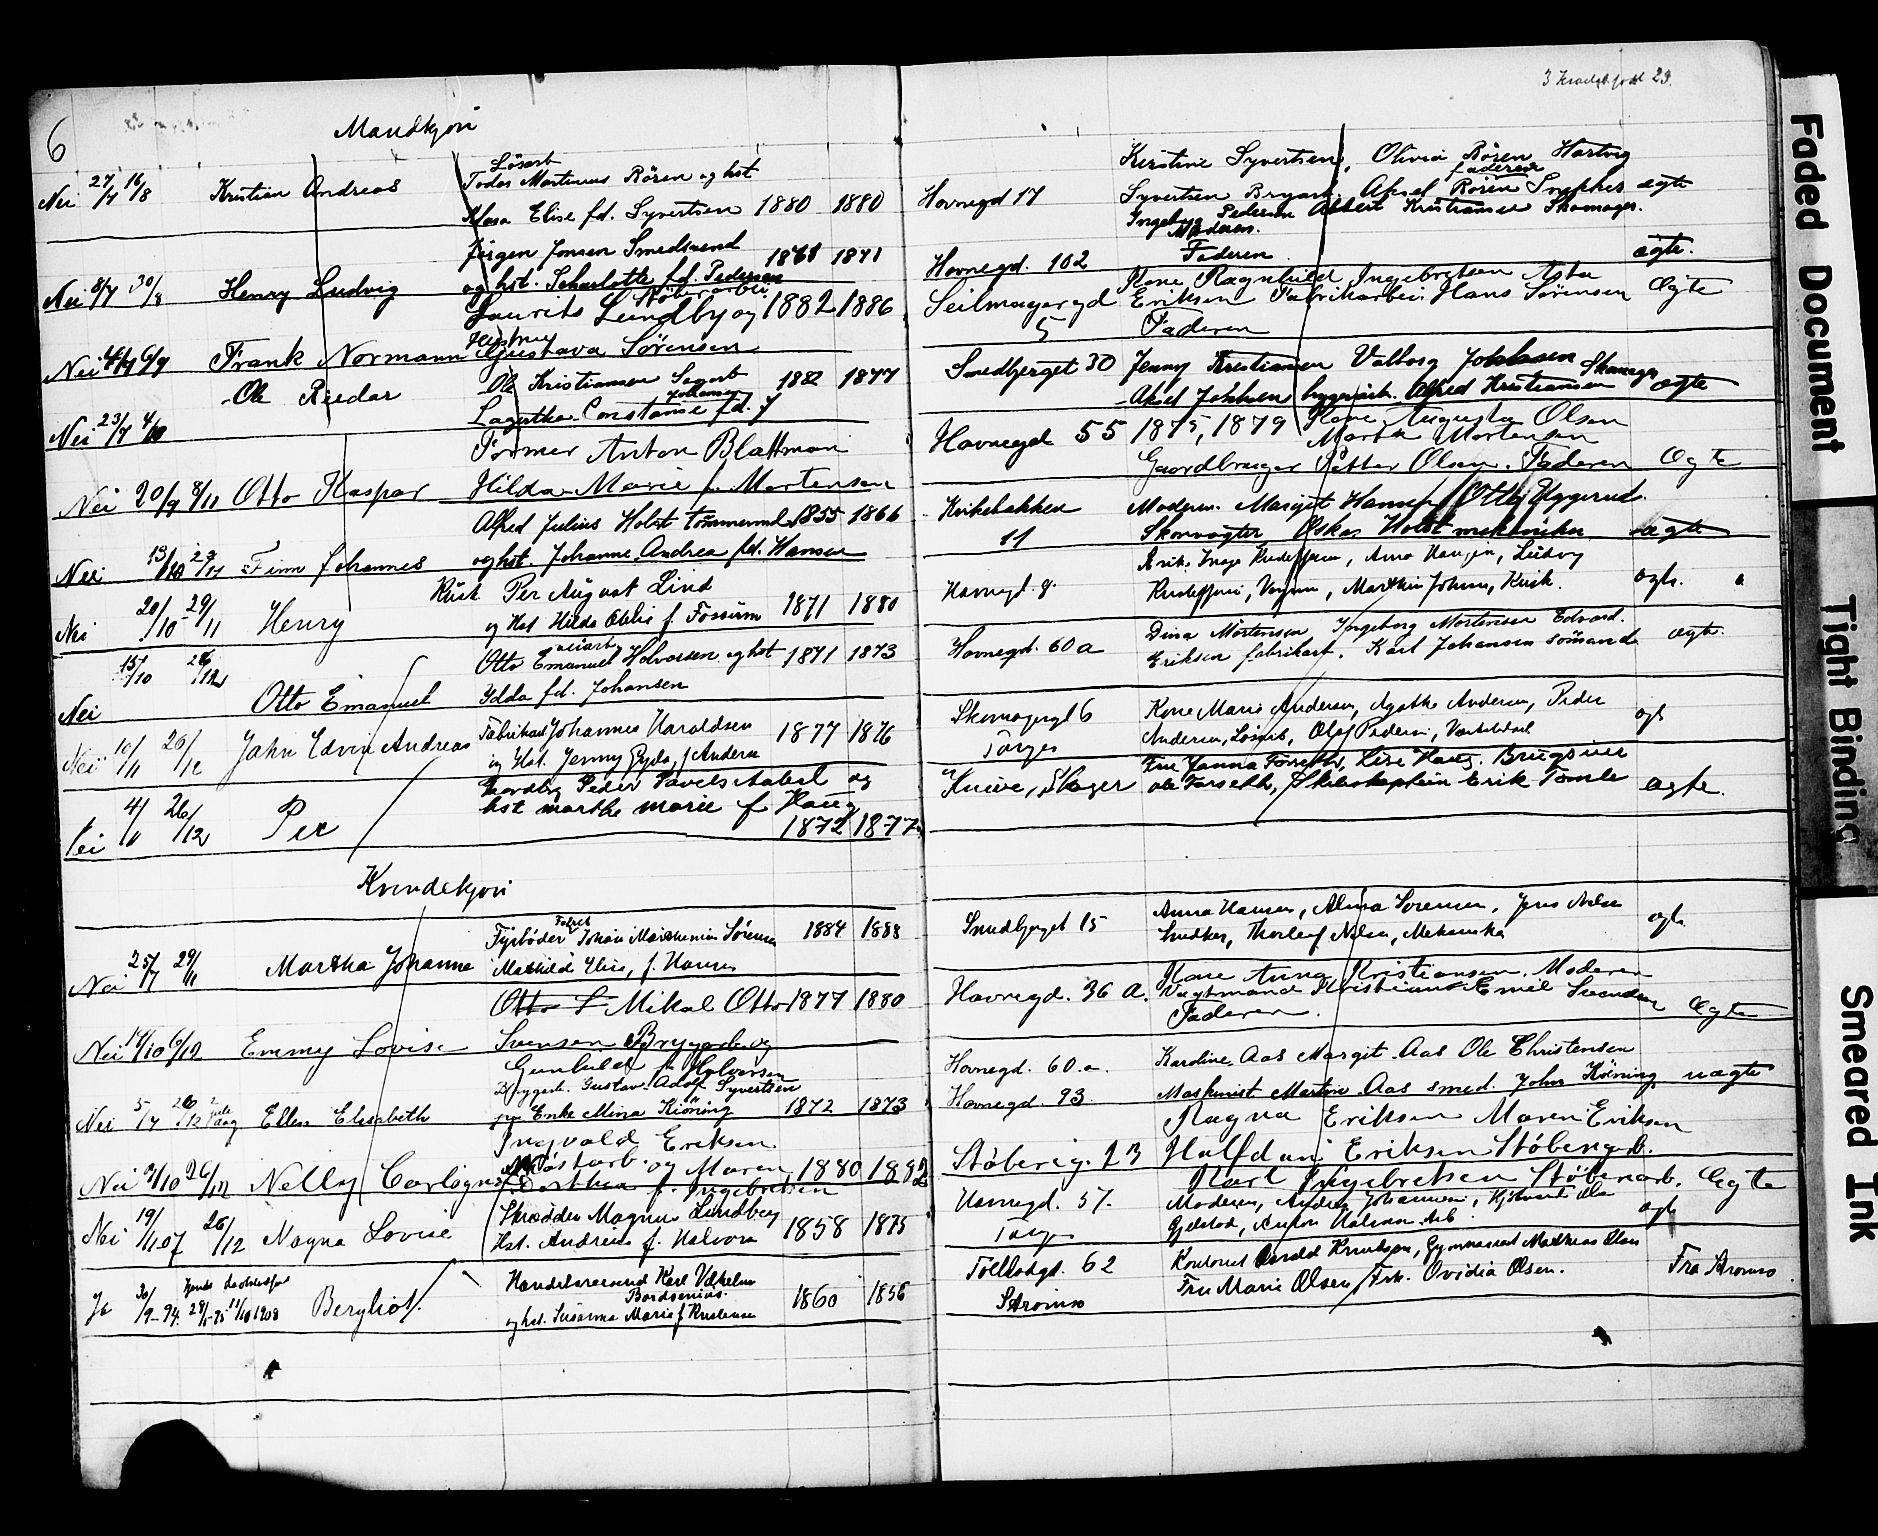 6
Mandkjøn
Løsarb
Nei 27/7 16/8 Kristian Andreas Todas Martinius Rören og hst
Klara Elise fd. Syvertsen 1880 1880
Jørgen Jonsen Smedsvend 1861 1871
Nei 8/7 30/8 Henry Ludvig og hst. Scharlotte fd. Pedersen
Støberarbei.
Laurits Lundby og 1882 1886
Hustru
Nei 14/7 6/9 Frank Normann Gustava Sørensen
Ole Reidar Ole Kristiansen Sagarb 1882 1877
Johansen
Nei 23/7 4/10 Lagertha Constanse fd.
Former Anton Blattman
Nei 20/9 8/11 Otto Kaspar Hilda Marie f. Mortensen
Alfred Julius Holst tømmermd. 1855 1866
Nei 13/10 23/11 Finn Johannes og hst. Johanne Andrea fd. Hansen
Kusk Per August Lind
Nei 20/10 29/11 Henry og Hst Hilda Otelie f. Fossum 1871 1880
15/10 26/12 Otto Emanuel Halvorsen og hst 1871 1873
Nei Otto Emanuel Ydda fd. Johansen
Nei 10/11 26/12 John Edvin Andreas Fabrikarb Johannes Haraldsen 1877 1876
og Hst. Jenny Gyda f Andersen
Gaardbr Peder Pavels Aabest og
Nei 4/11 26/12 Per hst marthe marie f Haug
1872 1877
Kvindekjøn
Nei 25/7 29/11 Martha Johanne Fyrbøder Johan Marthinius Sørensen 1884 1888
Mathilde Elise, f. Hansen
Otto S Mikal Otto 1877 1880
Nei 14/10 6/12 Emmy Lovise Svensen Bryggarb og
Gunhild f. Halvorsen
Bryggerb. Gustav Adolf Syvertsen
Nei 5/7 26/12 2 jule dag Ellen Elisabeth Enke Mina Kiöning 1872 1873
Ingvald Eriksen
Nei 2/10 26/12 Nelly Carlagne Løstarb. og Maren 1880 1882
Dorthea f. Ingebretsen
Nei 19/11 07 26/12 Magna Lovise Skrædder Magnus Lindberg 1858 1875
Hst. Andrea f. Halvors
Ja 30/9-94. 28/1-95 11/10 1908 Bergliot Handelsreisend Karl Vilhelm
Bordsenius 1860 1856
og hst. Susanna Marie f Kristensen
3 23.
Kirstine Syvertsen, Olivia Rören, Hartvig
faderen
Havnegd 17 Syvertsen Bryarb. Aksel Rören Snekker ægte
Ingeborg Pedersen Albert Kristiansen Skomager.
Moderen.
Havnegd. 102 Faderen ægte.
Kone Ragnhild Ingebretsen Asta
Seilmagergd 5 Eriksen Fabrikarbei. Hans Sørensen Ægte
Faderen
Smedbjerget 30 Jenny Kristiansen Valborg Johansen Skomager
Aksel Johansen bryggearb. Alfred Kristiansen ægte
Havnegd 55 1875, 1879 Kone Augusta Olsen
Marta Mortensen
Gaardbruger Petter Olsen. Faderen Ægte
Kirkebakken 11 Moderen. Margit Hansen Otto Uggerud.
Skovvogter Oskar Holst mekaniker ægte
Havnegd. 8. Anna Haugen, Ludvig
Marthin Johnsen, Kusk. ægte.
Havnegd. 60 a Dina Mortensen Ingeborg Mortensen Edvard.
Eriksen fabrikarb. Karl Johansen sømand ægte.
Skomagergd 6 Kone Marie Andersen, Agathe Andersen, Peder
Torget Andersen, Olaf Pedersen, ægte
Kniive, Skoger Fru Hanna Forseth, Lise Haug. Brugseier
ole Forseth, Skibskaptein Erik Tomle ægte.
Smedbjerget 15 Anna Hansen, Alma Sorensen, Jens Nilsen
Snedker, Thorleif Nilsen, Mekaniker ægte
Havnegd. 36 a. Kone Anna Kristiansen. Moderen
Vagtmand Kristian Emil Svendsen
Faderen. Ægte
Havnegd. 60 a. Karoline Aas Margit Aas Ole Christensen
Havnegd. 93 Maskinist Martin Aas smed. John Köining uægte
Ragna Eriksen Maren Eriksen
Støberig. 23 Halfdan Eriksen Støberigarb.
Karl Ingebretsen Støberarb. Ægte
Havnegd. 57. Moderen, Anders Johannesen,
Torget Gjelstad, Anton Halvorsen Arb. ægte
Toldbodgt. 62 Kontorist Arnold Knudsen, Gymnasiast Mathias Olsen
Strømsø Fru Marie Olsen, Frk. Ovidia Olsen. Fra Strømsø
Faded Document
Tight Binding
Smeared Ink